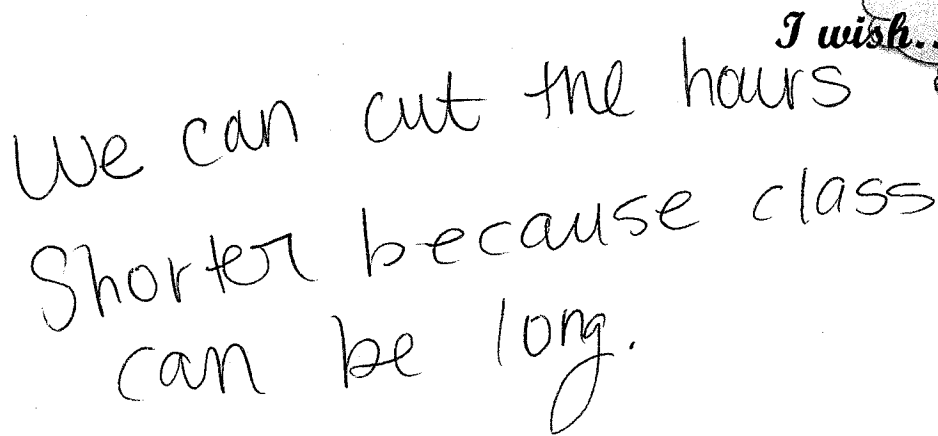 I wish..
We can cut the hours
Shorter because class
can be long.